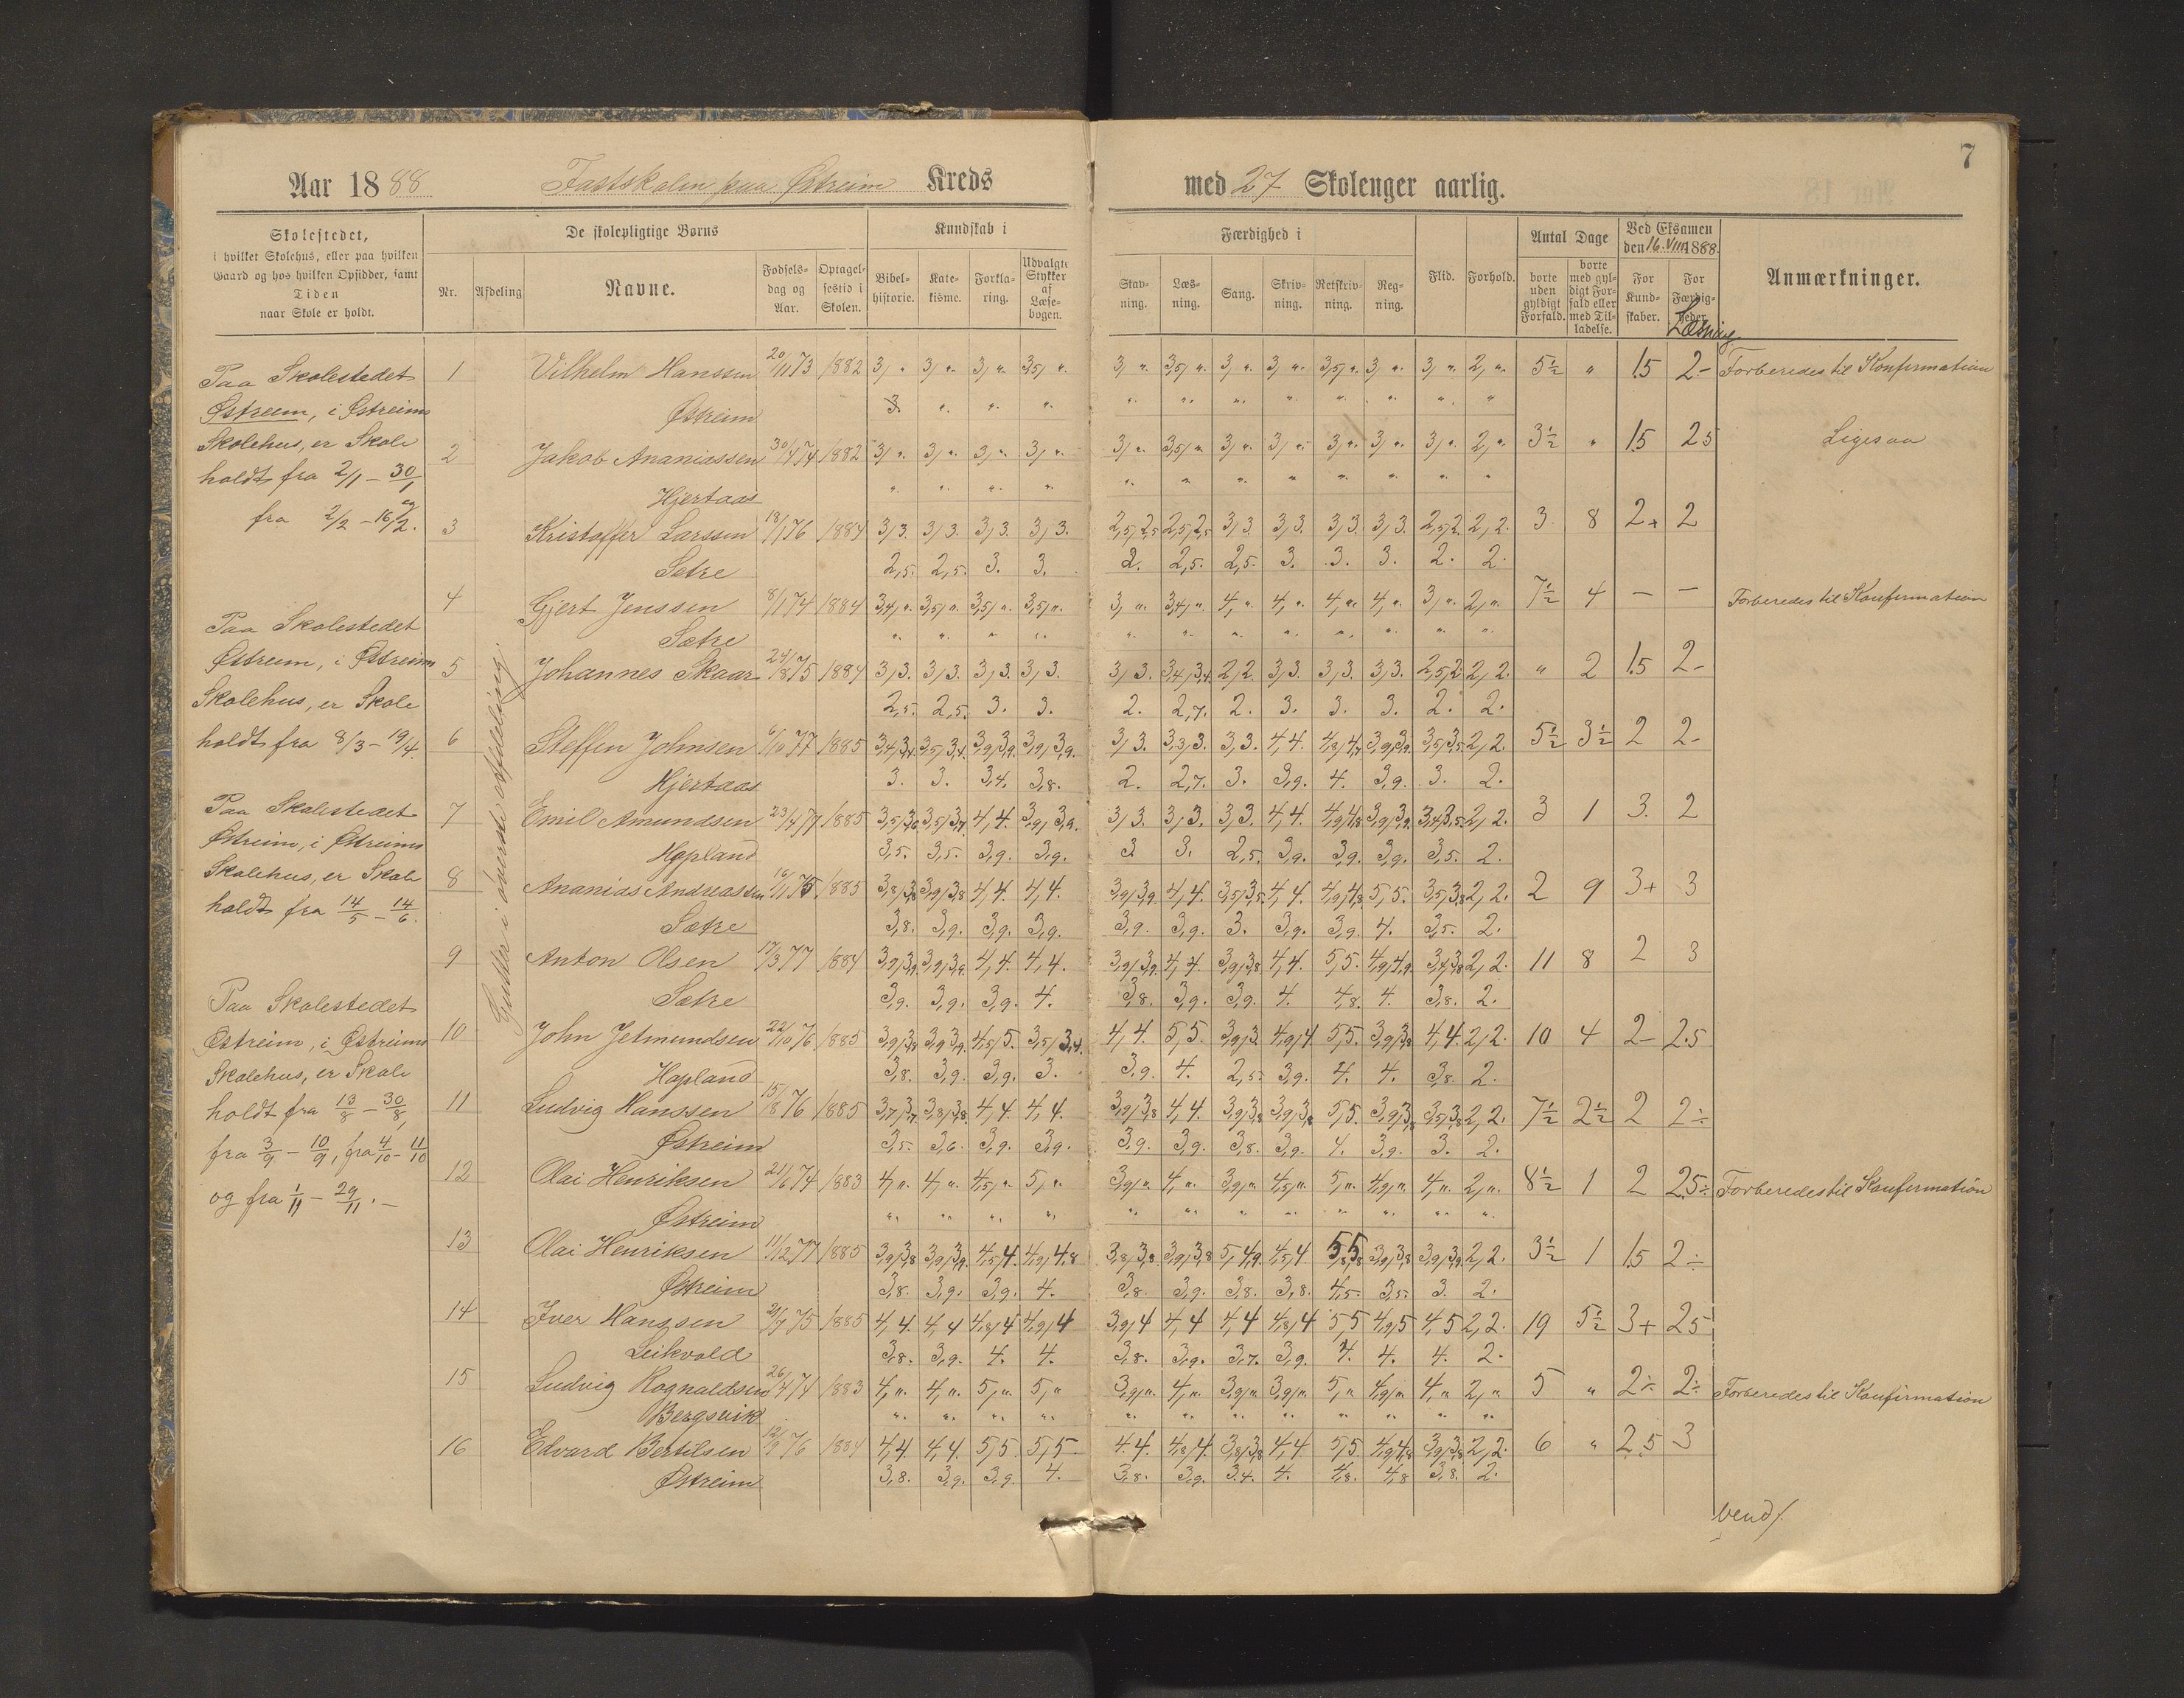 7
Aar 1888 Fastskolen paa Østreim Kreds med 27 Skoleuger aarlig.
Skolestedet,
i hvilket Skolehus, eller paa hvilken
Gaard og hos hvilken Opsidder, samt
Tiden
naar Skole er holdt.
De skolepligtige Børns
Nr. Afdeling Navne. Fødselsdag og Aar. Optagelsestid i Skolen.
Kundskab i
Bibelhistorie. Katekisme. Forklaring. Udvalgte Stykker af Læsebogen.
Færdighed i
Stavning. Læsning. Sang. Skrivning. Retskrivning. Regning.
Flid. Forhold.
Antal Dage
borte uden gyldigt Forfald. borte med gyldigt Forfald eller med Tilladelse.
Ved Eksamen
den 16.VIII 1888.
For Kundskaber. For Færdigheder. Læsning
Anmærkninger.
Paa Skolestedet
Østreim, i Østreims
Skolehus, er Skole
holdt fra 2/1 – 30/1
og
fra 2/2 – 16/2.
Paa Skolestedet
Østreim, i Østreims
Skolehus, er Skole
holdt fra 8/3 – 19/4.
Paa Skolestedet
Østreim, i Østreims
Skolehus, er Skole
holdt fra 14/5 – 14/6.
Paa Skolestedet
Østreim, i Østreims
Skolehus, er Skole
holdt fra 13/8 – 30/8,
fra 3/9 – 10/9, fra 4/10 – 11/10
og fra 1/11 – 29/11. –
Gutter i øverste Afdeling.
1 Vilhelm Hanssen 20/11 73 1882 3, " 3, " 3, " 3,5, " 3, " 3,5, " 3, " 3, " 3,5, " 3, " 3, " 2, " 5½ " 1.5 2- Forberedes til Konfirmation
Østreim 3. " " " " " " " " " " "
2 Jakob Ananiassen 30/4 74 1882 3, " 3, " 3, " 3, " 3, " 3,5, " 3, " 3, " 3, " 3, " 3, " 2, " 3½ " 1.5 2.5 Ligesaa
Hjertaas " " " " " " " " " " " "
3 Kristoffer Larssen 18/1 76 1884 3/3. 3/3. 3/3. 3/3. 2,5/2,5 2,5/2,5 3/3 3/3. 3/3. 3/3. 2,5/2. 2/2. 3 8 2+ 2
Sætre 2,5. 2,5. 3. 3. 2. 2,5. 2,5. 3. 3. 3. 2. 2.
4 Gjert Jenssen 8/1 74 1884 3,4, " 3,5, " 3,5, " 3,5, " 3, " 3,4, " 4, " 4, " 4, " 4, " 3, " 2, " 7½ 4 – – Forberedes til Konfirmation
Sætre " " " " " " " " " " " "
5 Johannes Skaar 24/8 75 1884 3/3. 3/3. 3/3. 3/3. 3/3. 3,4/3,4. 2/2. 3/3. 3/3. 3/3. 2,5/2 2/2. " 2 1.5 2-
2,5. 2,5. 3. 3. 2. 2,7. 2. 3. 3. 3. 2. 2.
6 Steffen Johnsen 6/10 77 1885 3,4/3,4. 3,5/3,4. 3,9/3,9. 3,9/3,9. 3/3. 3,3/3. 3/3. 4/4. 4,8/4,7 3,9/3,9. 3,5/3,5 2/2. 5½ 3½ 2 2-
Hjertaas 3. 3. 3,4. 3,8. 2. 2,7. 3. 3,9. 4. 3,9. 3. 2.
7 Emil Amundsen 23/4 77 1885 3,5/3,6 3,5/3,7 4/4. 3,9/3,9. 3/3. 3/3. 3/3. 4/4 4,9/4,8 3,9/3,9. 3,4/3,5 2/2. 3 1 3. 2
Hopland 3,5. 3,5. 3,9. 3,9. 3 3. 2,5. 3,9. 3,9. 3,9. 3,5. 2.
8 Ananias Andreassen 16/11 75 1885 3,8/3,8 3,9/3,8 4/4. 4/4. 3,9/3,9. 4/4. 3,5/3,5. 4/4. 4,9/4,8. 5/5. 3,5/3,8 2/2. 2 9 3+ 3
Sætre 3,8. 3,9. 3,9. 3,9. 3,9. 3,9. 3. 3,9. 3,9. 4. 3,5. 2.
9 Anton Olsen 17/3 77 1884 3,9/3,9 3,9/3,9. 4/4. 4/4. 3,9/3,9. 4/4. 3,9/3,8 4/4. 5/5. 4,9/4,9. 3,4/3,8 2/2. 11 8 2 3
Sætre 3,9. 3,9. 3,9. 4. 3,8. 3,9. 3,9. 4. 4,8. 4. 3,8. 2.
10 John Jetmundsen 22/10 76 1885 3,9/3,8 3,9/3,9. 4,5/5. 3,5/3,4. 4/4. 5/5. 3,9/3. 4,9/4 5/5. 3,9/3,8 4/4. 2/2. 10 4 2- 2.5
Hopland 3,8. 3,9. 3,9. 3. 3,9. 4. 2,5. 3,9. 4. 4. 3,8. 2.
11 Ludvig Hanssen 15/8 76 1885 3,7/3,7 3,8/3,8. 4/4. 4/4. 3,9/3,8 4/4. 3,9/3,8 3,9/3,8 5/5. 3,9/3,8 3,5/3,8 2/2. 7½ 2½ 2 2÷
Østreim 3,5. 3,6. 3,9. 3,9. 3,9. 3,9. 3,8. 3,9. 4. 3,9. 3. 2.
12 Olai Henriksen 21/6 74 1883 4, " 4, " 4,5, " 5, " 3,9, " 4, " 3,9, " 4,5, " 5, " 4,9, " 4, " 2, " 8½ 1 2 2.5÷ Forberedes til Konfirmation
Østreim " " " " " " " " " " " "
13 Olai Henriksen 11/12 77 1885 3,9/3,8 3,9/3,9. 4,5/4. 4,9/4,8 3,8/3,8 3,9/3,8 5/4,9. 4,5/4 5/5,8 3,9/3,8 3,9/3,9 2/2. 3½ 1 1.5 2÷
Østreim 3,8. 3,9. 3,9. 4. 3,8. 3,9. 3,8. 3,8. 4,5. 3,5. 3. 2.
14 Iver Hanssen 21/7 75 1885 4/4. 4/4 4,8/4 4,9/4 3,9/4 4/4 4/4 4,8/4 5/5 4,9/5 4/5 2/2. 19 5½ 3+ 2.5
Leikvold 3,8. 3,9. 4. 4. 3,8. 3,9. 3,7. 3,9. 4. 4. 4. 2.
15 Ludvig Rognaldsen 26/4 74 1883 4, " 4, " 5, " 5, " 3,9, " 4, " 3,9, " 3,9, " 5, " 4,9, " 4, " 2, " 5 " 2÷ 2÷ Forberedes til Konfirmation
Bergsvik " " " " " " " " " " " "
16 Edvard Bertilsen 12/9 76 1884 4/4. 4/4. 5/5 5/5. 4/4. 4,8/4. 3,8/3,8 4/4 5/5. 4,9/4,8 3,9/3,8 2/2. 6 " 2.5 3
Østreim 3,8. 3,9. 3,9. 4. 3,8. 3,9. 3,4. 4. 4,8. 4,8 3,8. 2.
vend/.